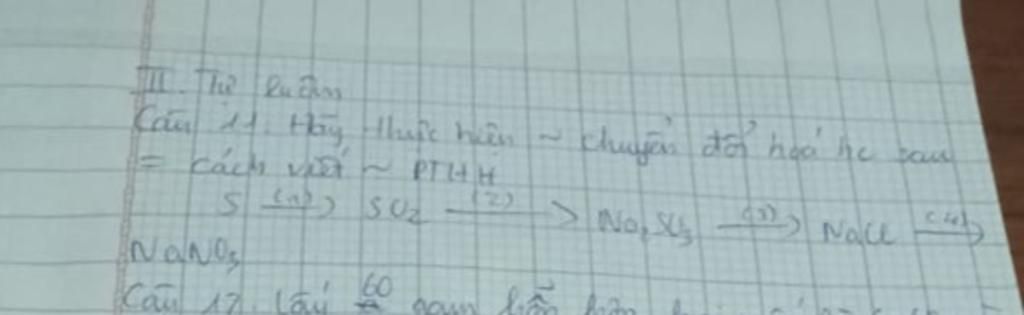 II. Tự luận
Câu 11. Hãy thực hiện ~ chuyển đổi hoá học sau
= cách viết ~ PTHH
S (1)→ SO₂ (2)→ Na₂SO₃ (3)→ NaCl (4)→
NaNO₃
Câu 12. Lấy 60 gam